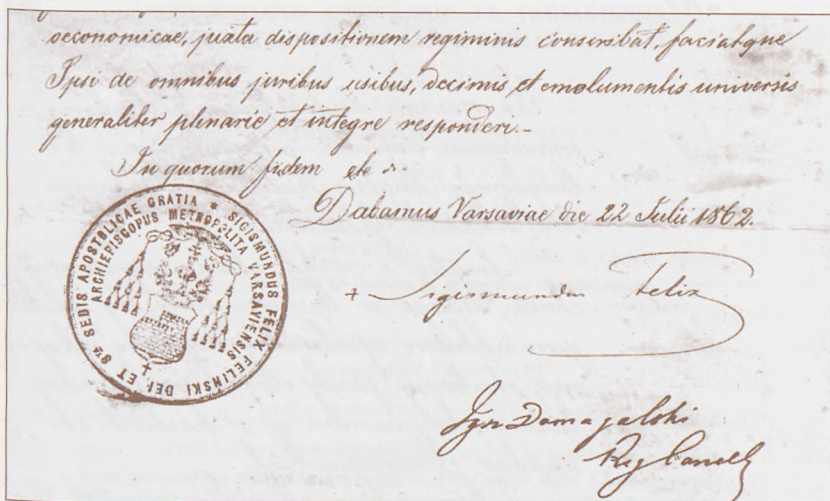 oeconomicae, juxta dispositionem regiminis conscribat, faciatque
Ipsi de omnibus juribus usibus, decimis et emolumentis universis
generaliter plenarie et integre responderi.-
In quorum fidem etc
Dabamus Varsaviae die 22 Julii 1862.
* SIGISMUNDUS FELIX FELINSKI DEI ET Sae SEDIS APOSTOLICAE GRATIA
ARCHIEPISCOPUS METROPOLITA VARSAVIENSIS
+ Sigismundus Felix
Domagalski